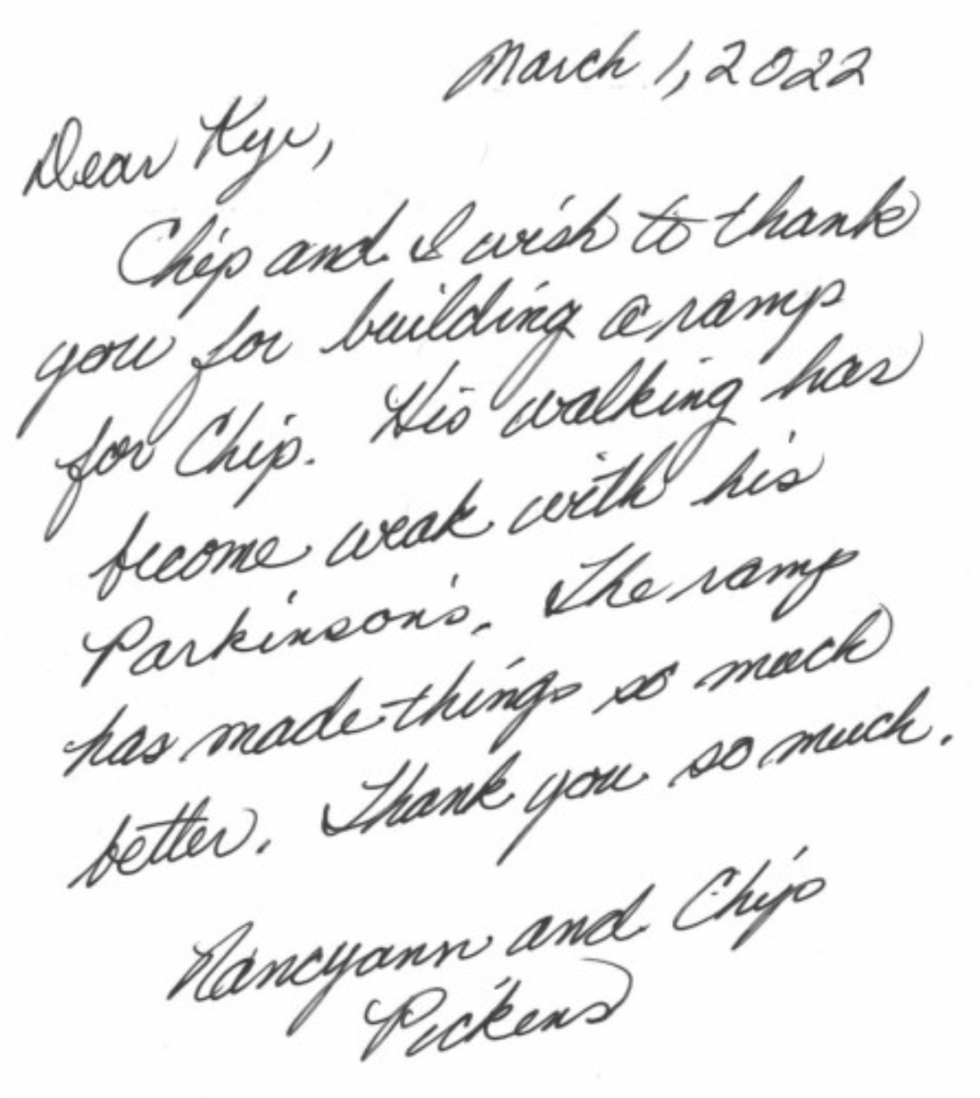 March 1, 2022
Dear Kye,
Chip and I wish to thank
you for building a ramp
for Chip. His walking has
become weak with his
Parkinson's. The ramp
has made things so much
better. Thank you so much.
Nancyann and Chip
Pickens